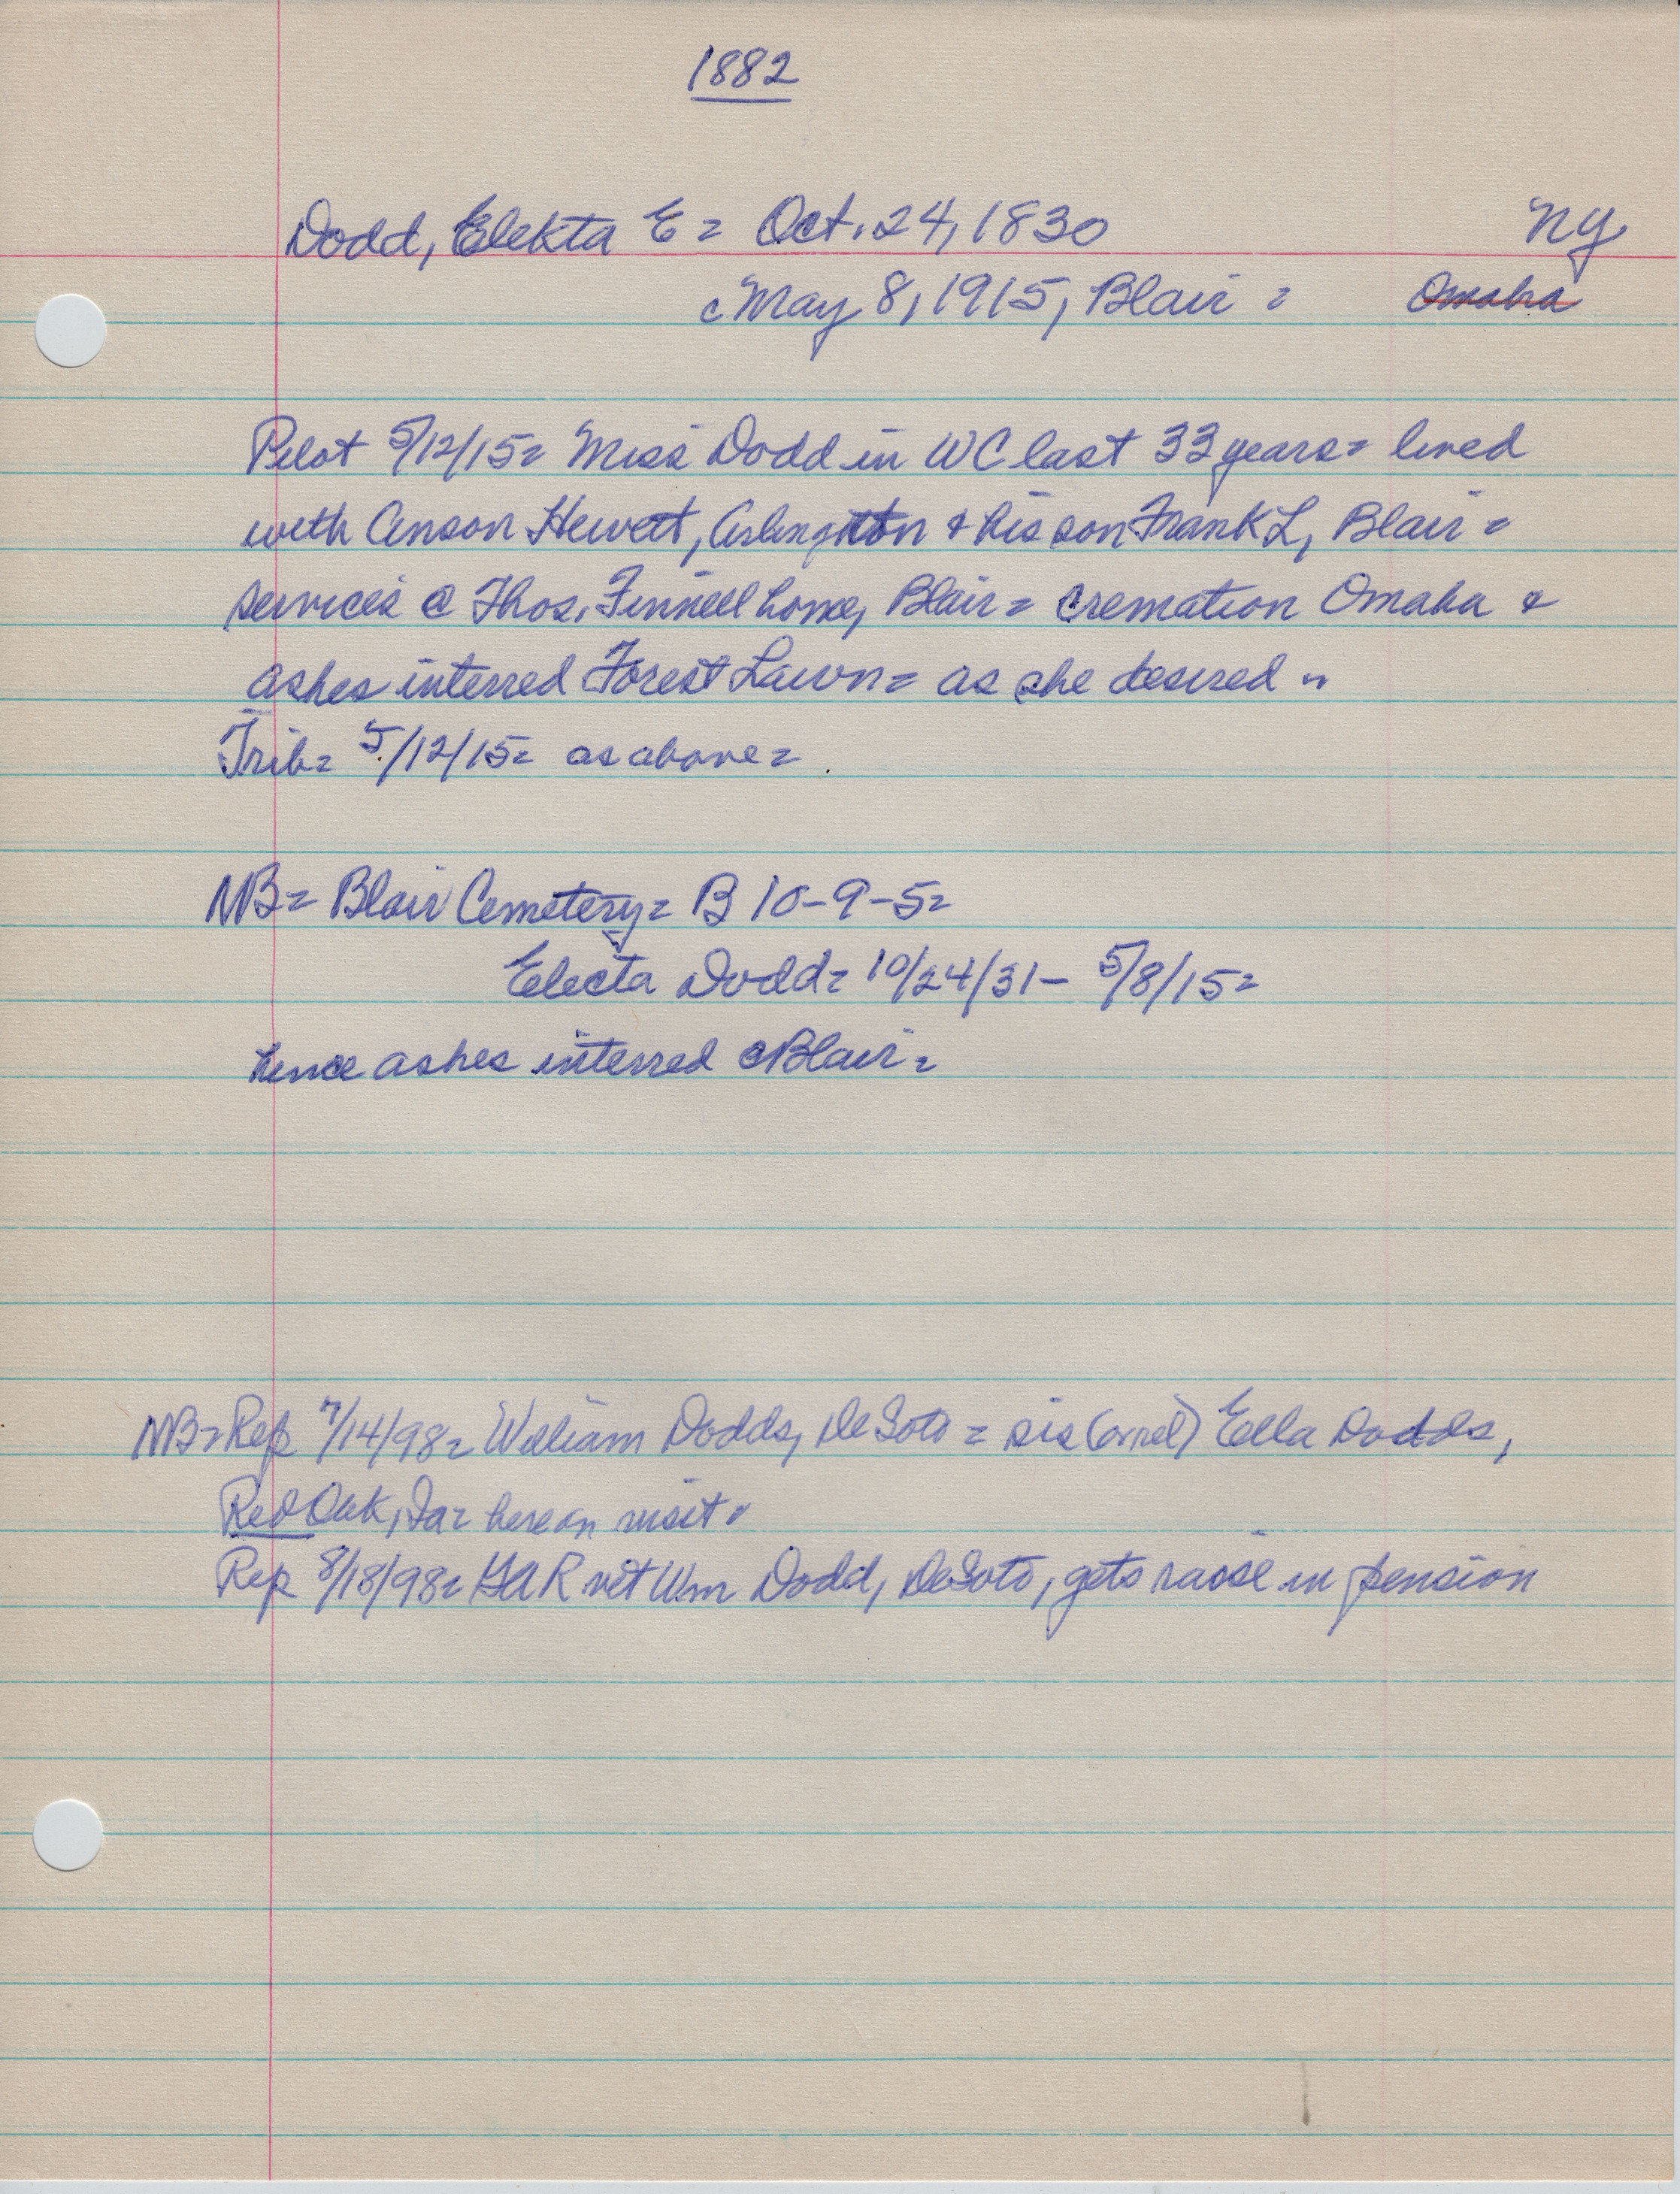 1882
Dodd, Elekta E = Oct. 24, 1830 NY
May 8, 1915, Blair = Omaha
Pilot 5/12/15 = Miss Dodd in WC last 33 years = lived
with Anson Hewett, Arlington & his son Frank L, Blair =
services @ Thos. Finnell home, Blair = cremation Omaha &
ashes interred Forest Lawn = as she desired =
Trib = 5/12/15 = as above =
NB = Blair Cemetery = B 10-9-5 =
Electa Dodd = 10/24/31 - 5/8/15 =
hence ashes interred Blair =
NB = Rep 7/14/98 = William Dodds, DeSoto = sis Ella Dodds,
Red Oak, Ia = here on visit =
Rep 8/18/98 = GAR vet Wm Dodd, DeSoto, gets raise in pension